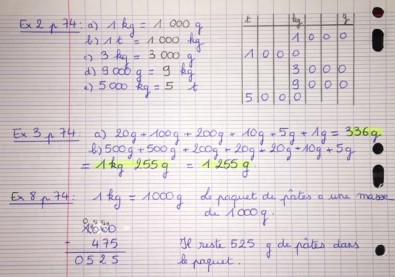 Ex 2 p 74 : a) 1 kg = 1 000 g
b) 1 t = 1 000 kg
c) 3 kg = 3 000 g
d) 9 000 g = 9 kg
e) 5 000 kg = 5 t
t kg g
1 0 0 0
1 0 0 0
3 0 0 0
9 0 0 0
5 0 0 0
Ex 3 p 74 : a) 20g + 100g + 200g + 10g + 5g + 1g = 336g
b) 500g + 500g + 200g + 20g + 20g + 10g + 5g
= 1 kg 255 g = 1 255 g.
Ex 8 p 74 : 1 kg = 1000g Le paquet de pâtes a une masse
de 1000 g.
1000
- 475
0525
Il reste 525 g de pâtes dans
le paquet.